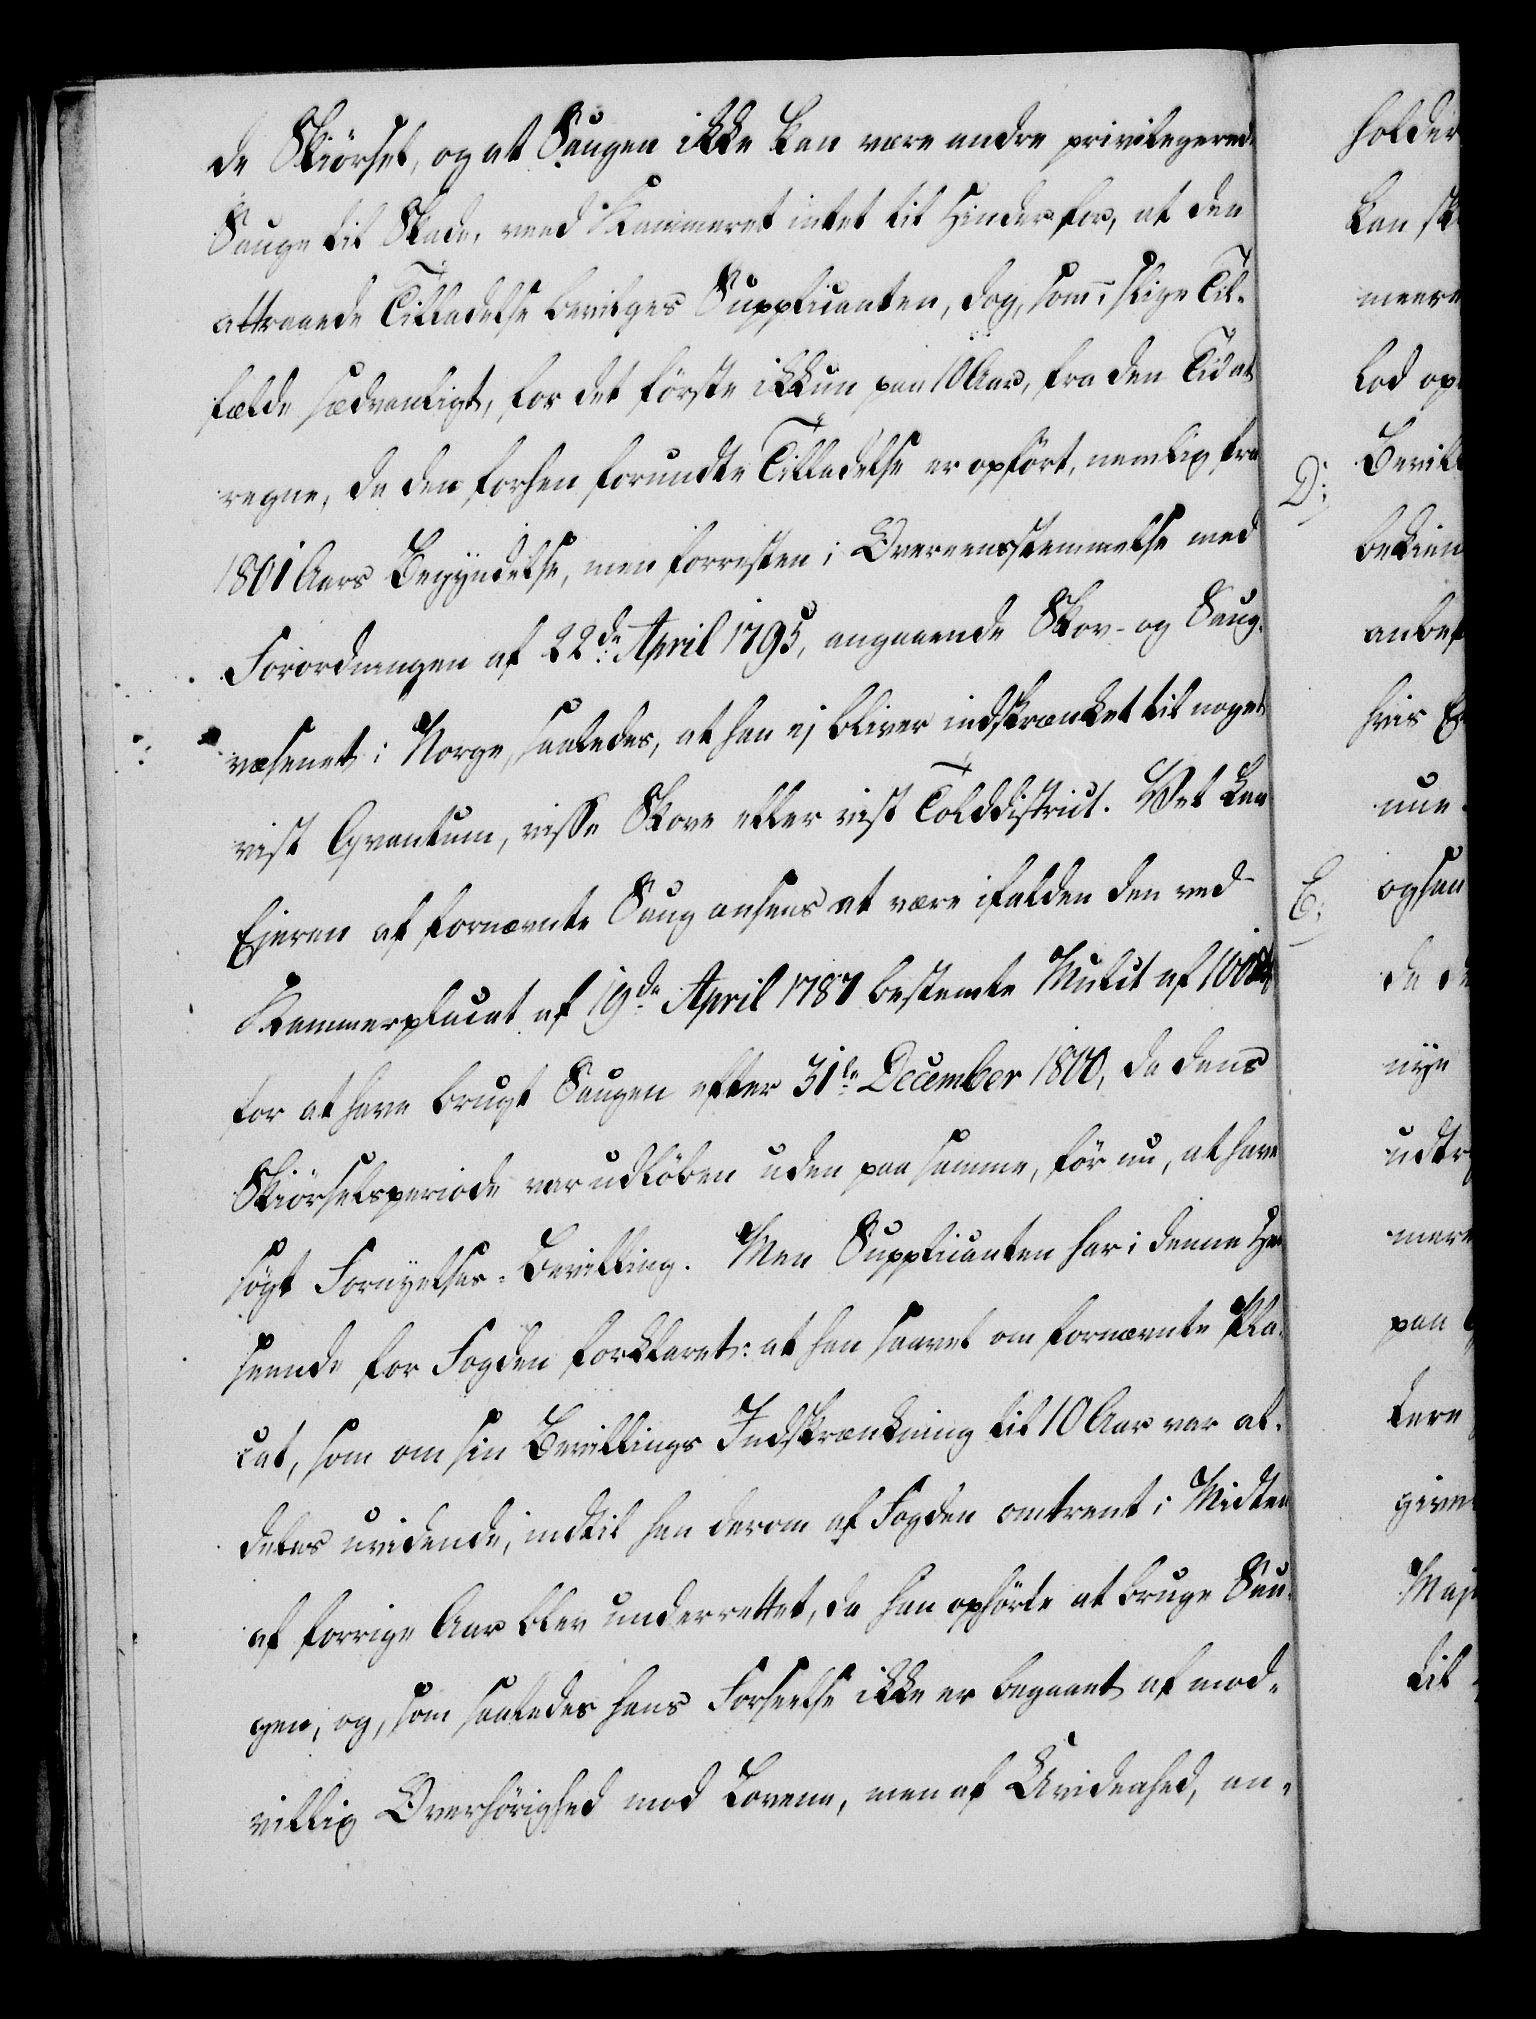 de Skiörsel, og at Saugen ikke kan være andre privilegerede
Sauge til Skade, veed Kammeret intet til Hinder for, at den
attraaede Tilladelse bevilges Supplicanten, dog, som i slige Til-
fælde sædvanligt, for det förste ikkun paa 10 Aar, fra den Tid at
regne, da den forhen forundte Tilladelse er ophört, nemlig fra
1801 Aars Begyndelse, men forresten i Overeensstemmelse med
Forordningen af 22de April 1795, angaaende Skov- og Saug-
væsenet i Norge, saaledes, at han ej bliver indskrænket til noget
vist Qvantum, visse Skove eller vist Tolddistrict. Vel kan
Ejeren af fornævnte Saug ansees at være ifalden den ved
Kammerplacat af 19de April 1787 bestemte Mulct af 100 rdr,
for at have brugt Saugen efter 31te December 1800, da dens
Skiörselsperiode var udlöben uden paa samme, för nu, at have
sögt Fornyelses-Bevilling. Men Supplicanten har i denne Hen
seende for Fogden forklaret: at han saavel om fornævnte Pla-
cat, som om sin Bevillings Indskrænkning til 10 Aar var al-
deles uvidende, indtil han derom af Fogden omtrent i Midten
af forrige Aar blev underrettet, da han ophörte at bruge Sau-
gen, og, som saaledes hans Forseelse ikke er begaaet af mod-
villig Overhörighed mod Lovene, men af Uvidenhed, an-
holder
kan sk
meere
lod op
D:
Bevill
bekien
anbef
hvis E
nue
E:
ogsaa
da de
nye
udtr
mere
paa
kere
give
Maj
til